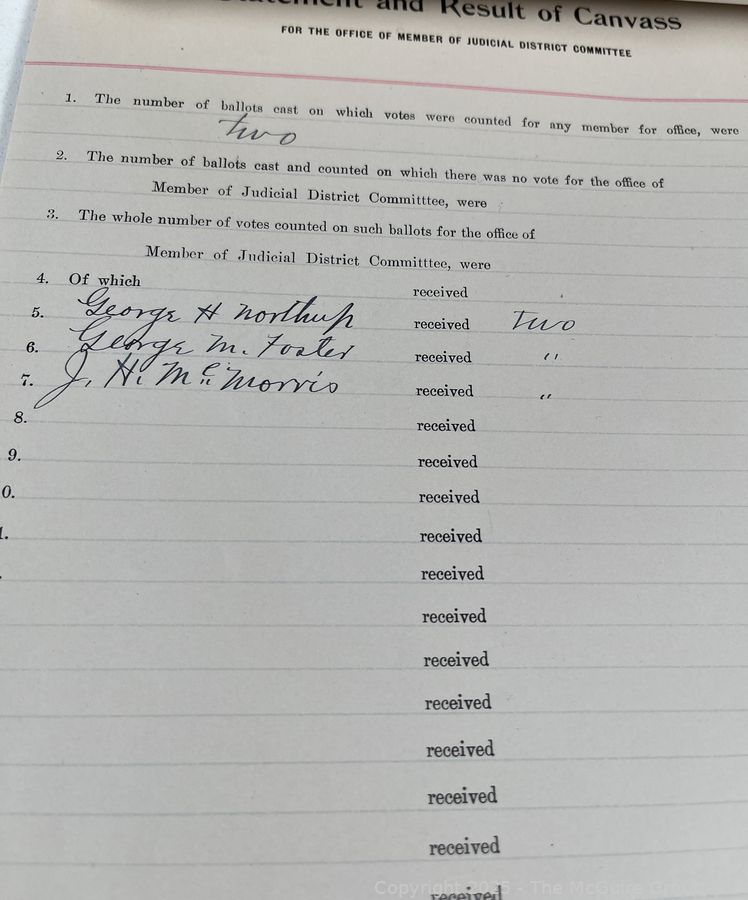 and Result of Canvass
FOR THE OFFICE OF MEMBER OF JUDICIAL DISTRICT COMMITTEE
1. The number of ballots cast on which votes were counted for any member for office, were
two
2. The number of ballots cast and counted on which there was no vote for the office of
Member of Judicial District Committtee, were
3. The whole number of votes counted on such ballots for the office of
Member of Judicial District Committtee, were
4. Of which received
5. George H Northup received Two
6. George M. Foster received "
7. J. H. Mc Morris received "
8. received
9. received
0. received
1. received
. received
received
received
received
received
received
received
received
Copyright 2025 - The McGuire Gro